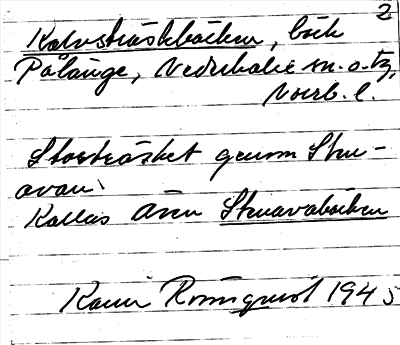 2
Kalvsträskbäcken, bäck
Pålänge, Nederkalix sn. o. tg,
Norrb. l.
Storträsket genom Stru-
avan
Kallas även Struavabäcken
Karin Rönnqvist 1945